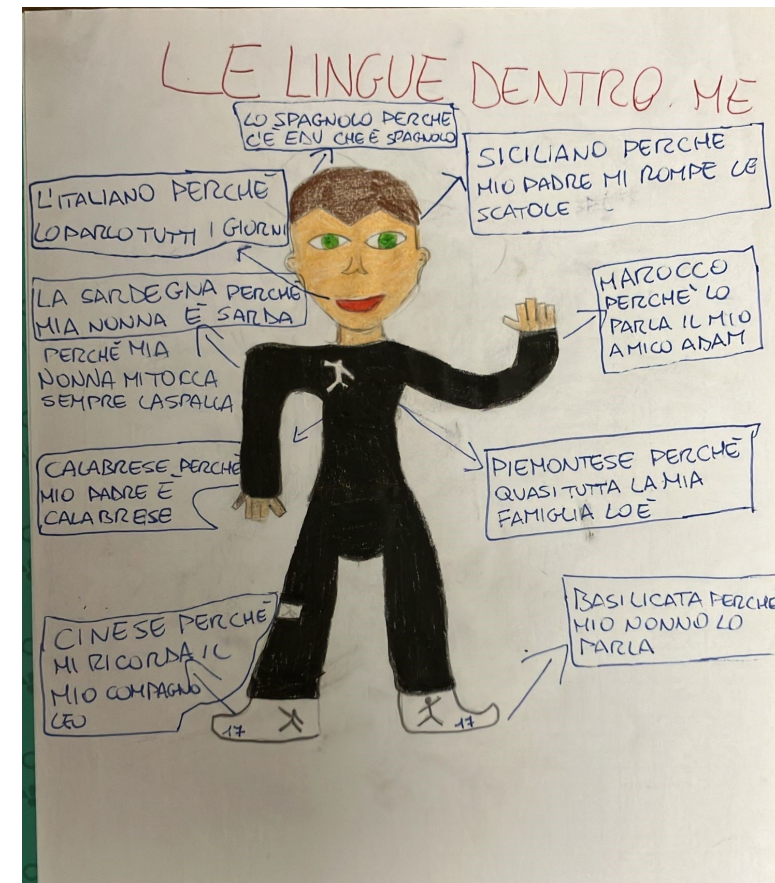 LE LINGUE DENTRO ME
LO SPAGNOLO PERCHÈ
C'È EDU CHE È SPAGNOLO
SICILIANO PERCHÈ
MIO PADRE MI ROMPE LE
SCATOLE
L'ITALIANO PERCHÈ
LO PARLO TUTTI I GIORNI
LA SARDEGNA PERCHÈ
MIA NONNA È SARDA
PERCHÈ MIA
NONNA MI TOCCA
SEMPRE LA SPALLA
MAROCCO
PERCHÈ LO
PARLA IL MIO
AMICO ADAM
CALABRESE PERCHÈ
MIO PADRE È
CALABRESE
PIEMONTESE PERCHÈ
QUASI TUTTA LA MIA
FAMIGLIA LO È
CINESE PERCHÈ
MI RICORDA IL
MIO COMPAGNO
LEO
BASILICATA PERCHE
MIO NONNO LO
PARLA
17
17